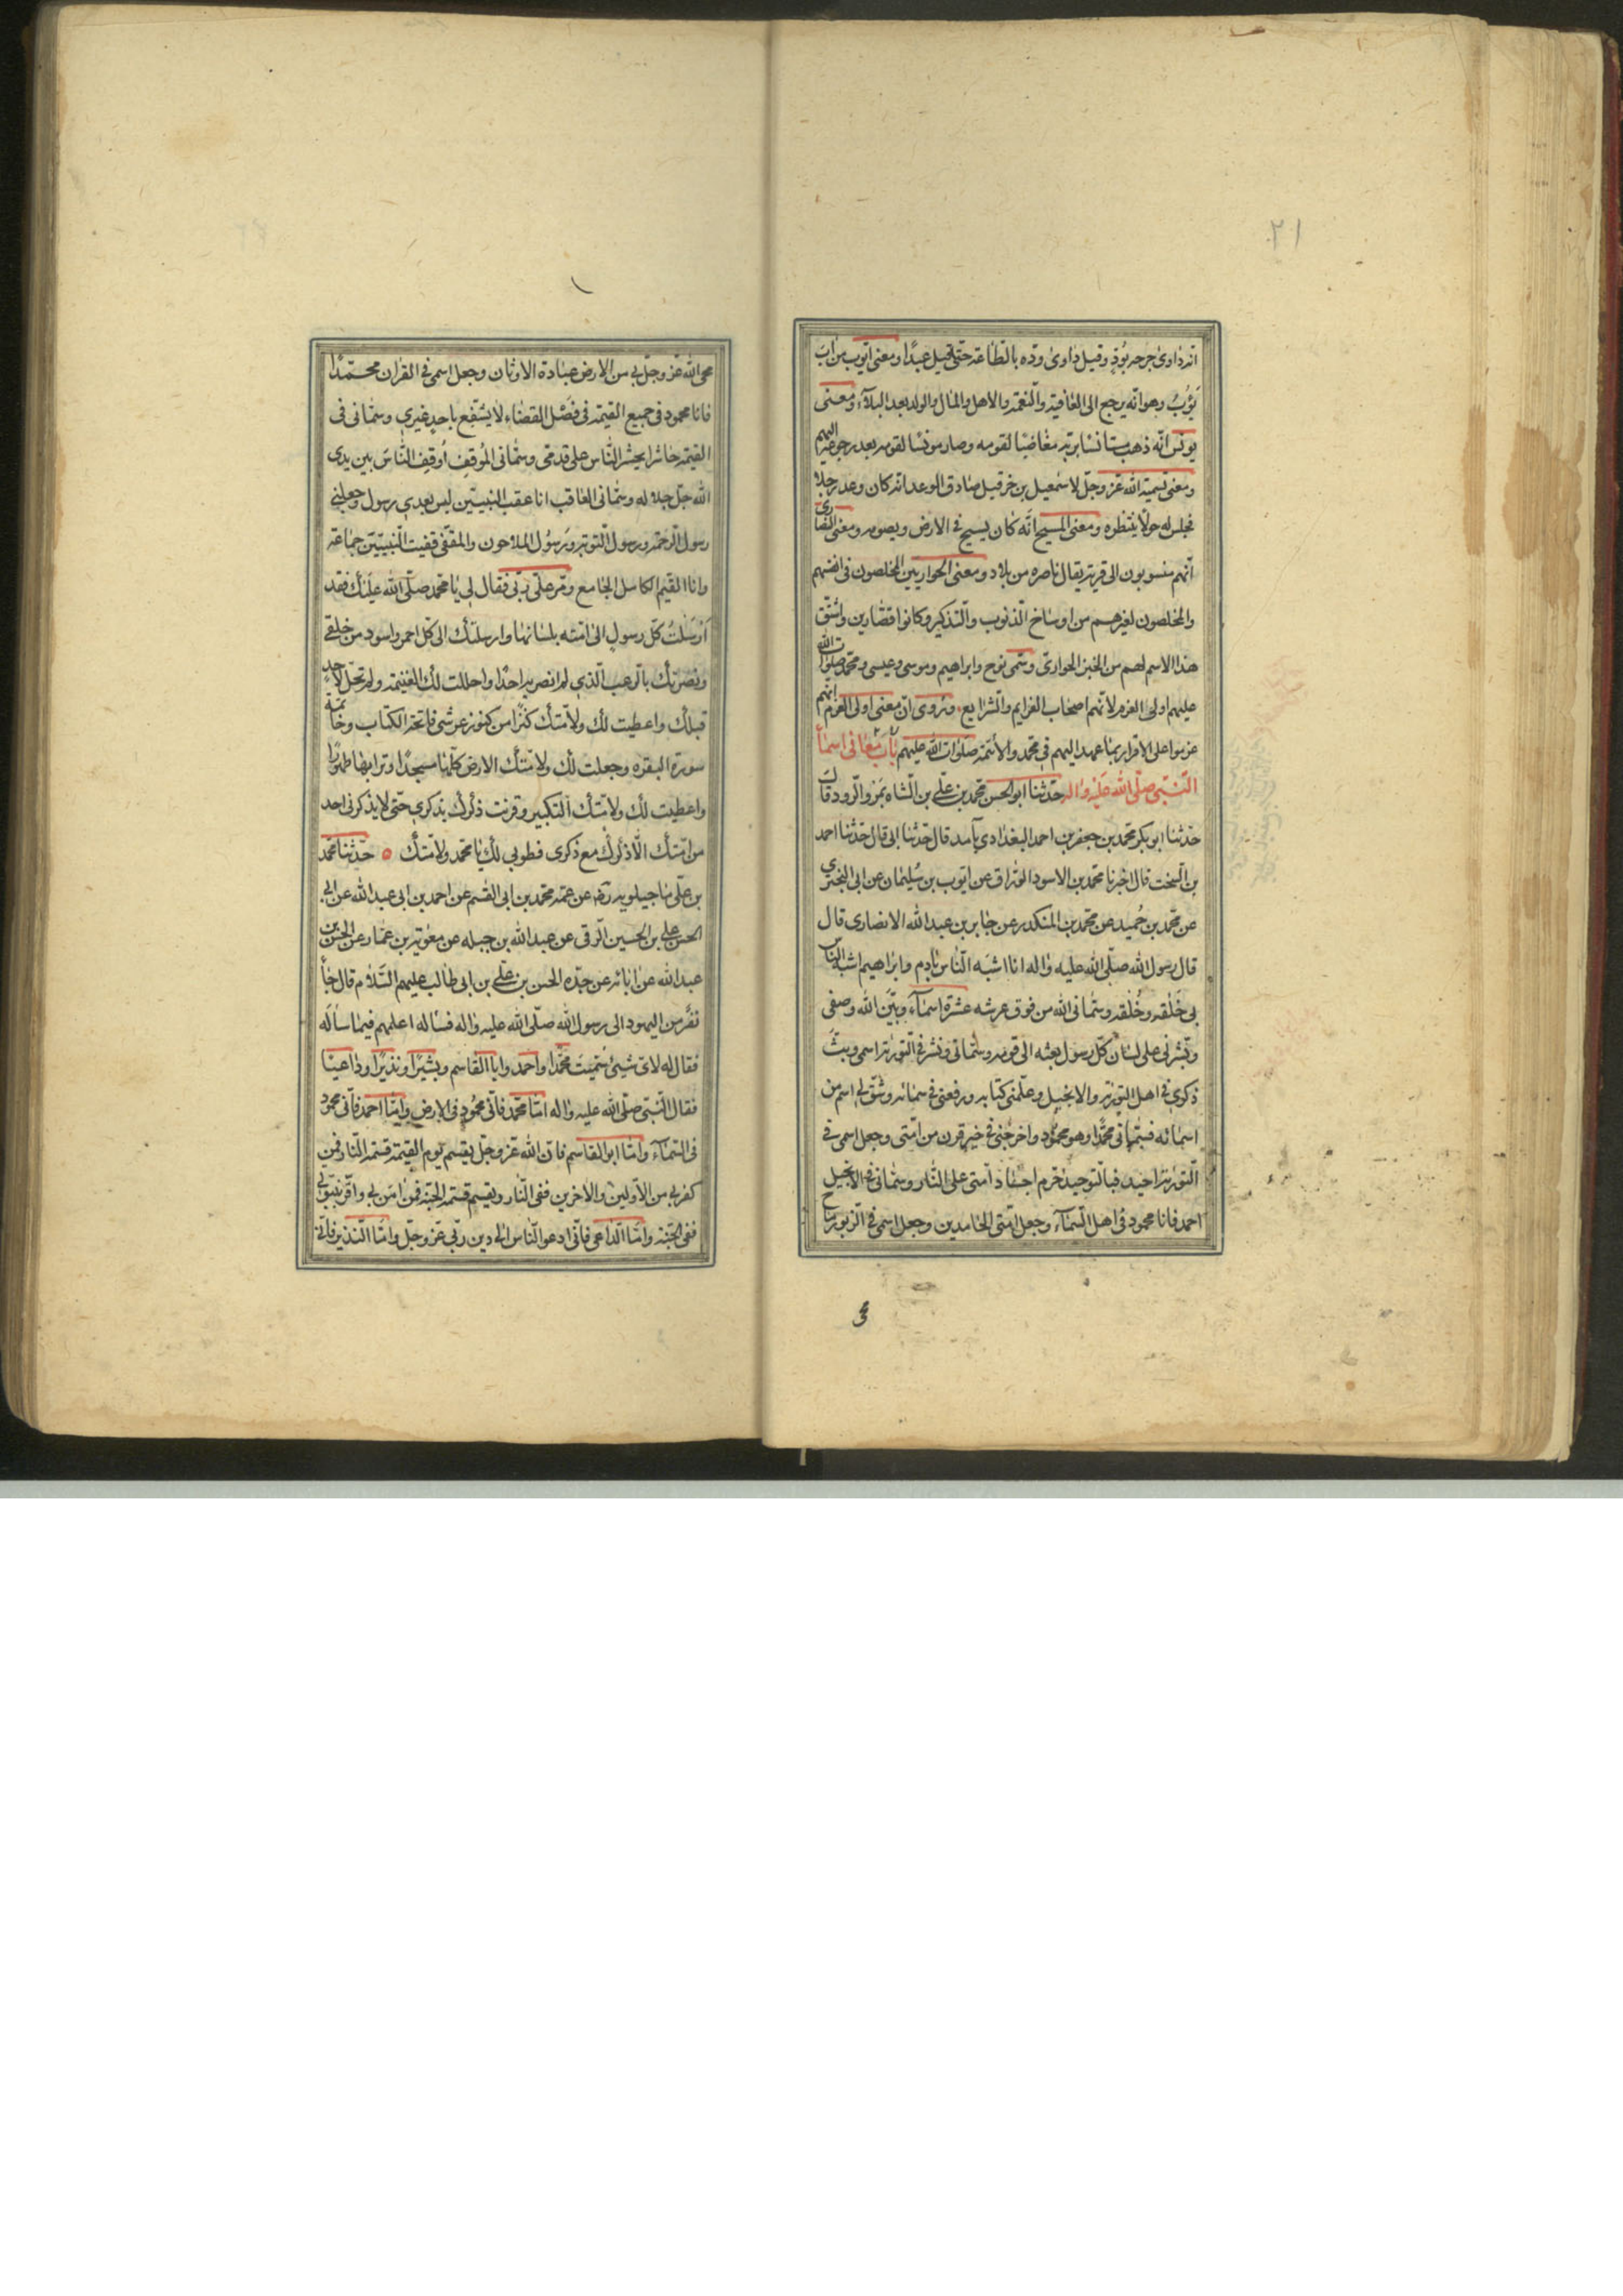 ٢١
انه داوى جرحه بوُدٍ وقيل داوى ودّه بالطّاعة حتّى قيل عبدًا ومعنى ايّوب من اب
يَؤُبُ وهو انّه يرجع الى العافية والنّعمة والاهل والمال والولد بعد البلآء ومعنى
يونس انّه ذهب مستانسًا بربّه مغاضبًا لقومه وصار مونسًا لقومه بعد رجوعه اليهم
ومعنى تسمية الله عزّ وجلّ لاسمعيل بن حزقيل صادق الوعد انه كان وعد رجلا
فجلس له حولًا ينتظره ومعنى المسيح انّه كان يسيح فى الارض ويصوم ومعنى النصارى
انّهم منسوبون الى قرية يقال ناصره من بلاد ومعنى الحواريين المخلصون فى انفسهم
والمخلصون لغيرهم من اوساخ الذنوب والتذكير وكانوا قصّارين واشتق
هذا الاسم لهم من الخبز الحوارىّ وسمّى نوح وابراهيم وموسى وعيسى ومحمّد صلوات الله
عليهم اولى العزم لانّهم اصحاب العزايم والشرايع وتروى انّ معنى اولى العزم انهم
عزموا على الاقرار بما عهد اليهم فى محمّد والائمّة صلوات الله عليهم باب معانى اسمآء
النّبى صلّى الله عليه واله حدّثنا ابو الحسن محمّد بن على بن الشاه بمرو الرّود قال
حدّثنا ابو بكر محمّد بن جعفر بن احمد البغدادى بآمد قال حدّثنا ابى قال حدّثنا احمد
بن السخت قال اخبرنا محمّد بن الاسود الورّاق عن ايّوب بن سُليمان عن ابى البخترى
عن محمّد بن حُميد عن محمّد بن المنكدر عن جابر بن عبد الله الانصارى قال
قال رسول الله صلّى الله عليه واله انا اشبَه النّاس بادم وابراهيم اشبه النّاس
بى خَلقه وخُلقه وسمّانى الله من فوق عرشه عشرة اسمآء وبيّن الله وصفى
وبشّرنى على لسان كلّ رسول بعثه الى قومه وسمّانى ونشر فى التورية اسمى وبثّ
ذكرى فى اهل التورية والانجيل وعلّمنى كتابه ورفعنى فى سمائه وشقّ لى اسم من
اسمائه فسمّانى محمّدًا وهو محمود واخرجنى فى خير قرن من امّتى وجعل اسمى فى
التورية احيد فبالتوحيد حرم اجساد امّتى على النّار وسمّانى فى الانجيل
احمد فانا محمود فى اهل السّمآء وجعل امّتى الحامدين وجعل اسمى فى الزبور ماح
محى الله عزّ وجلّ بى من الارض عبادة الاوثان وجعل اسمى فى القران محمّدًا
فانا محمود فى جميع القيمة فى فصل القضاء لا يشفع باحد غيرى وسمّانى فى
القيمة حاشرا يحشر النّاس على قدمىّ وسمّانى المُوقف اُوقف النّاس بين يدى
الله جلّ جلاله وسمّانى العاقب انا عقب النبيّين ليس بعدى رسول وجعلنى
رسول الرّحمة ورسول التوبة ورسُول الملاحون والمقفّى قفيت النّبيّين جماعة
وانا القيم الكامل الجامع ومرّ علّى ربّى فقال لى يا محمّد صلّى الله عليك فقد
اَرسَلتُ كلّ رسول الى امّته بلسانها وارسلتك الى كلّ احمر واسود من خلقى
ونصرتك بالرعب الّذى لم انصر به احدًا واحللت لك الغنيمة ولم تحلّ لاحدٍ
قبلك واعطيت لك ولامّتك كنزًا من كنوز عرشى فاتحة الكتاب وخاتمة
سورة البقره وجعلت لك ولامّتك الارض كلّها مسجدًا وترابها طهورًا
واعطيت لك ولامّتك التكبير وقرنت ذكرك بذكرى حتّى لا يذكرنى احد
من امّتك الّا ذكرك مع ذكرى فطوبى لك يا محمّد ولامّتك ه حدّثنا محمّد
بن علّى ماجيلويه رضه عن عمّه محمّد بن ابى القسم عن احمد بن ابى عبد الله عن ابى
الحسن على بن الحسين الرقى عن عبد الله بن جبله عن معوية بن عمّار عن الحسن بن
عبد الله عن ابائه عن جدّه الحسن بن على بن ابى طالب عليهم السّلام قال جآء
نفر من اليهود الى رسول الله صلّى الله عليه واله فساله اعلمهم فيما ساله
فقال له لاىّ شىئ سُمّيت محمّدا واحمد وابا القاسم وبشيرًا ونذيرًا وداعيًا
فقال النّبى صلّى الله عليه واله امّا محمّد فانّى محمُود فى الارض وامّا احمد فانّى محمود
فى السّمآء وامّا ابو القاسم فانّ الله عزّ وجلّ يقسم يوم القيمة قسمة النّار فمن
كفر بى من الاوّلين والاخرين ففى النّار ويقسم قسمة الجنّة فمن امن بى واقرّ بنبوّتى
ففى الجنّة وامّا الدّاعى فانّى ادعو النّاس الى دين ربّى عزّ وجلّ وامّا النّذير فانّى